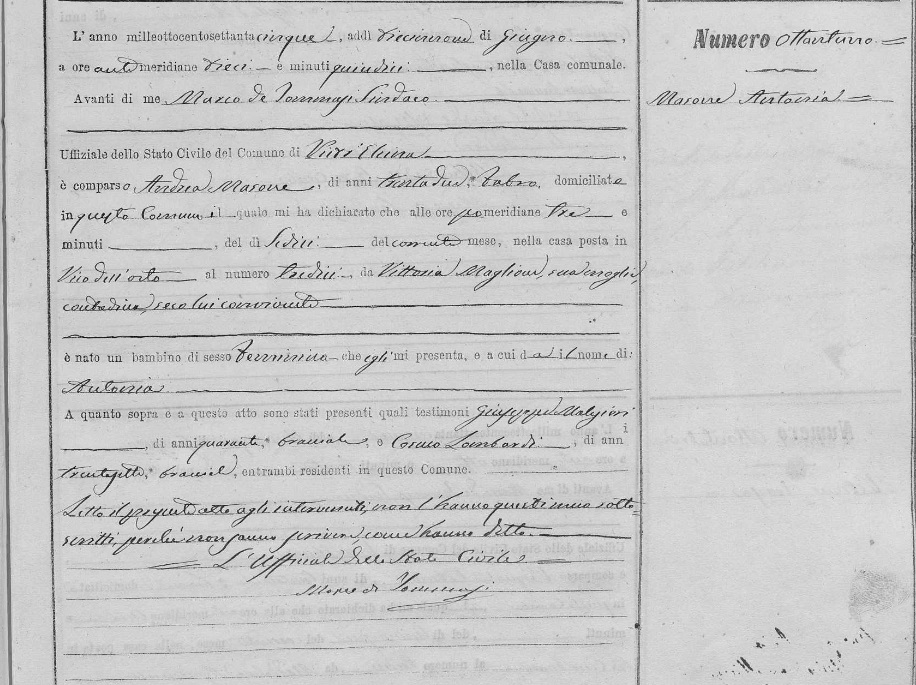 Numero Ottantuno
Masone Antonia
L'anno milleottocentosettantacinque, addì diecinnove di Giugno,
a ore antimeridiane dieci e minuti quindici, nella Casa comunale.
Avanti di me Marco de Tommasi Sindaco
Uffiziale dello Stato Civile del Comune di
è comparso Andrea Masone, di anni trentadue, fabro, domiciliato
in questo Comune il quale mi ha dichiarato che alle ore pomeridiane tre e
minuti , del dì Sedici del corrente mese, nella casa posta in
Vico dell'orto al numero tredici, da Vittoria Maglione, sua moglie,
contadina, seco lui convivente
è nato un bambino di sesso femminino che egli mi presenta, e a cui dà il nome di:
Antonia
A quanto sopra e a questo atto sono stati presenti quali testimoni Giuseppe
, di anni quaranta, bracciale, e Cosmo Lombardi, di anni
trentasette, bracciale, entrambi residenti in questo Comune.
Letto il presente atto agli intervenuti, non l'hanno questi meco sotto=
scritti, perché non sanno scrivere, come hanno detto.
L'Uffiziale dello Stato Civile
Marco de Tommasi